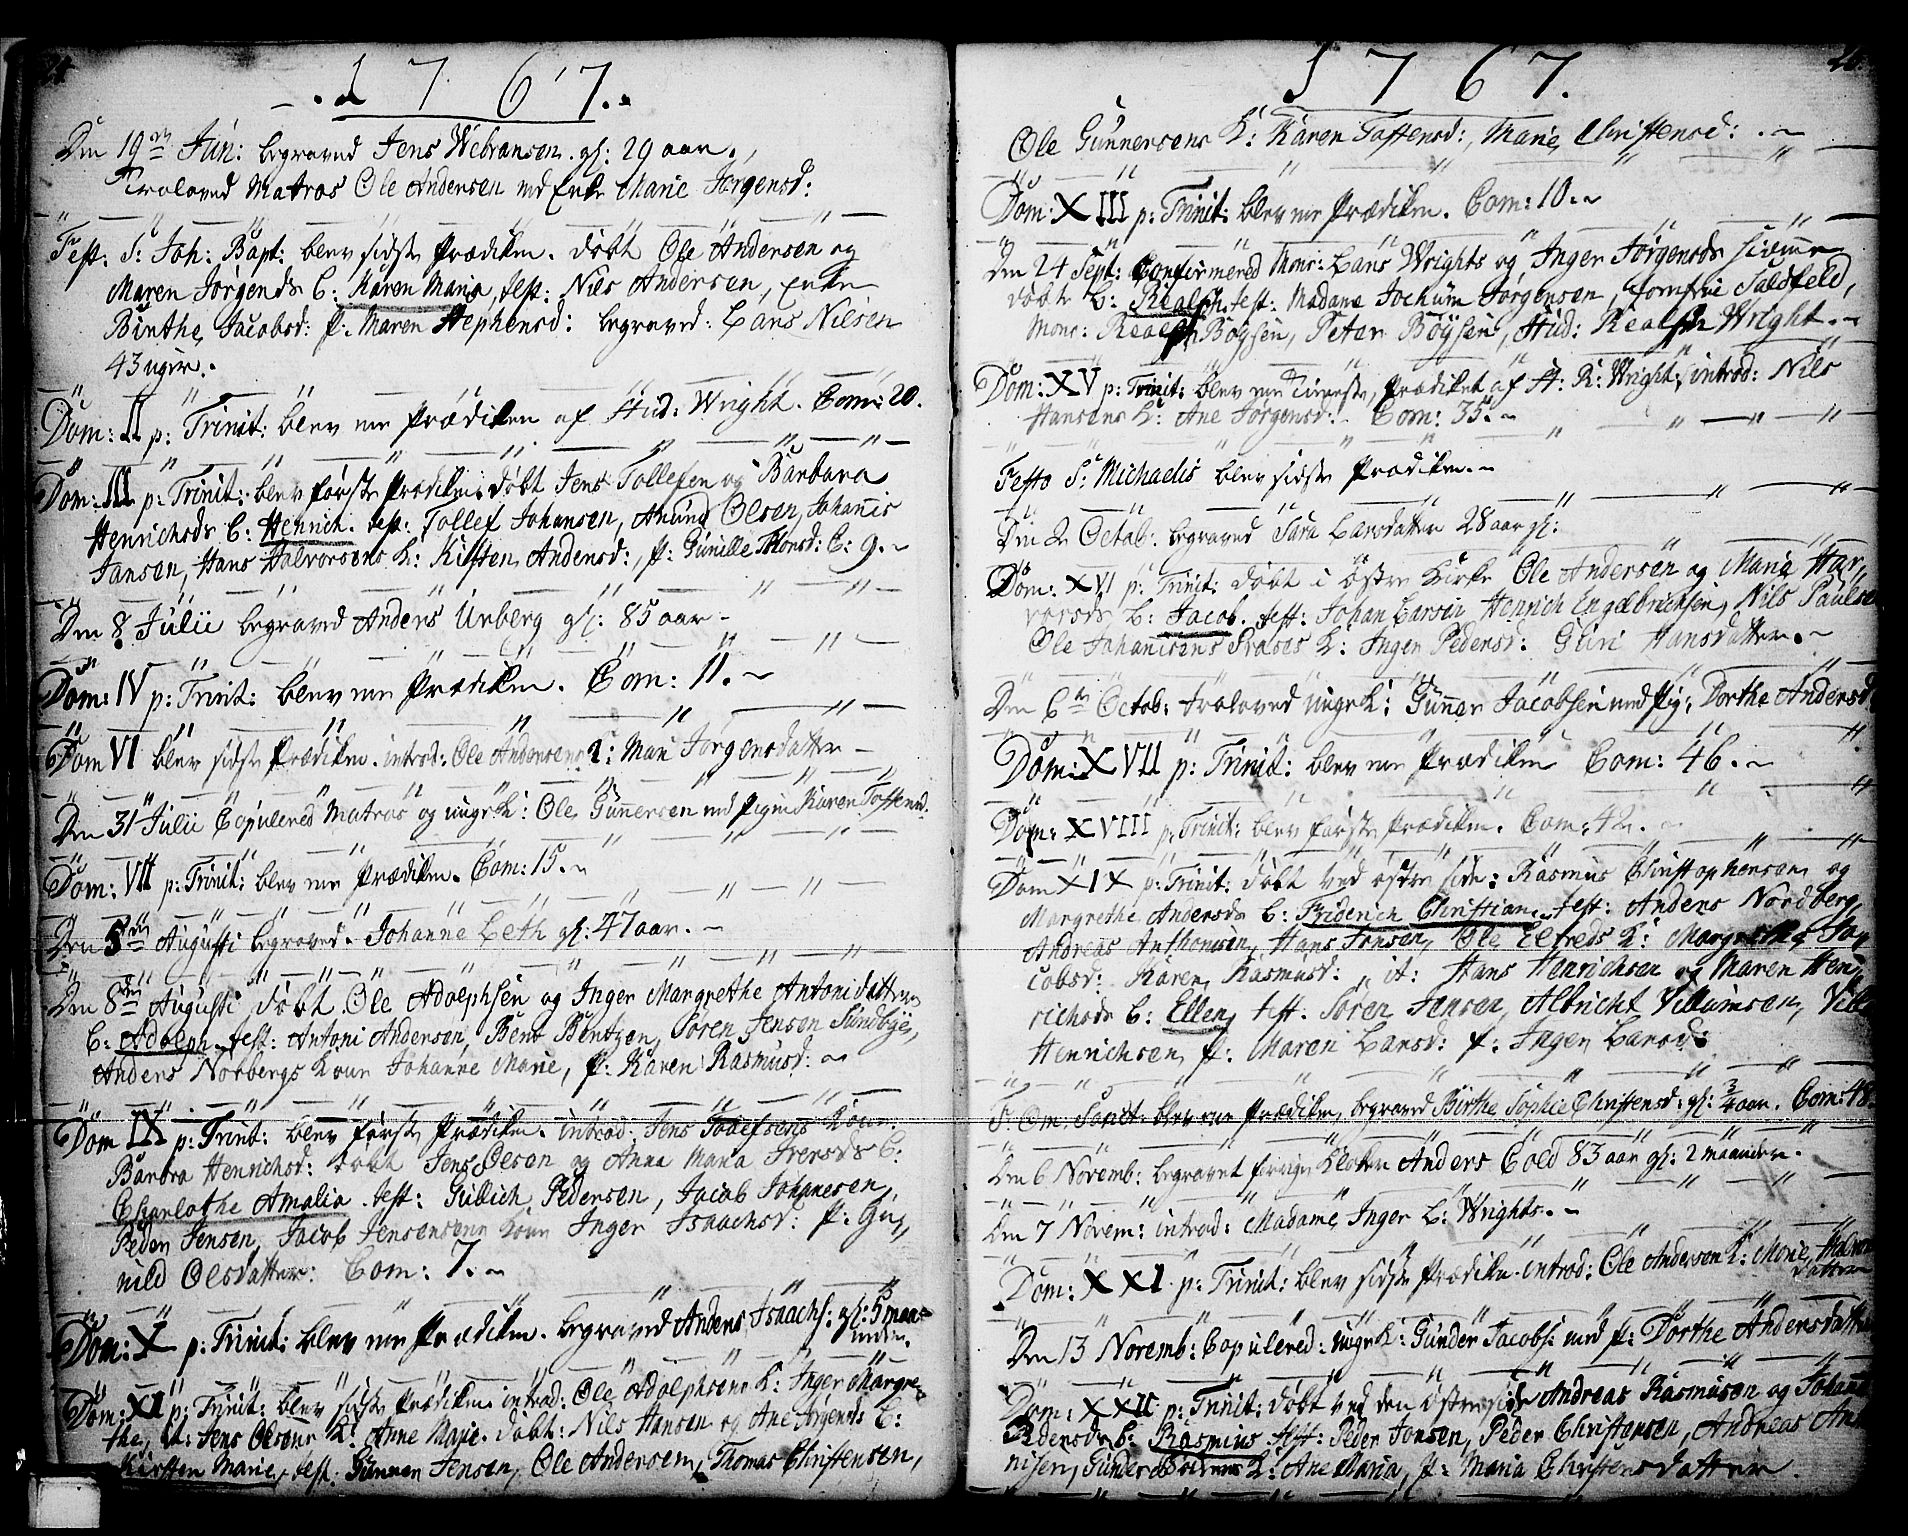 24
1767.
Den 19de Jun: begraved Jens Webransen. gl: 29 aar.
Troloved Matros Ole Andersen md Enke Marie Jørgensd:
Fest: S: Joh: Bapt: blev sidste Prædiken. døbt Ole Andersen og
Maren Jørgensds B: Karen Maria, test: Nils Andersen, Enke
Birthe Jacobsd: P: Maren Stephensd: begraved: Lars Nilsen
43 uger.
Dom: II p: Trinit: blev mn Prædiken af Stud: Wright. Com: 20.
Dom: III p: Trinit: blev første Prædiken. døbt Jens Tollefsen og Barbara
Henrichsds B: Henrich. test: Tollef Johansen, Anund Olsen, Johanis
Jansen, Hans Halvorsens K: Kisten Andersd:, p: Gunille Thonsd: C: 9.
Den 8 Julii begraved Anders Unberg gl: 85 aar
Dom: IV p: Trinit: blev mn Prædiken. Com: 11.
Dom VI blev sidste Prædiken. introd: Ole Andersens K: Mari Jørgensdatter
Den 31 Julii Copulered Matros og ungk: Ole Gunnersen md Pigen Karen Toffensd.
Dom: VII p: Trinit: blev mn Prædiken. Com: 15.
Den 5de Augusti begraved. Johanne Leth gl: 47 aar.
Den 8de Augusti døbt Ole Adolphsen og Inger Margrethe Antonidatters
B: Adolph. test: Antoni Andersen, Bent Bentzen, Søren Jensen Sundbye,
Anders Norbergs Kone Johanne Marie, P: Karen Rasmusd:
Dom IX p: Trinit: blev første Prædiken. introd: Jens Tollefsens Kone
Barbra Henrichsd: døbt Jens Olsen og Anna Maria Iversds B:
Charlothe Amalia. test: Gullich Pedersen, Jacob Johanesen,
Peder Jensen, Jacob Jensens Kone Inger Isaachsd: P: Gu,
nild Olsdatter: Com: 7.
Dom: X p: Trinit: blev mn Prædiken. begraved Anders Isaachs: gl: 5 maa-
neder.
Dom: XI p: Trinit: blev sidste Prædiken introd: Ole Adolphsens K: Inger Margre-
the, it: Jens Olsens K: Anne Marie. døbt: Nils Hansen og Ane Jørgensds B:
Kirsten Marie, test: Gunner Jensen, Ole Andersen, Thomas Christensen,
1767.
Ole Gunnersens K: Karen Toffensd:, Marie Christensd:
Dom: XIII p: Trinit: blev mn Prædiken. Com: 10.
Den 24 Sept: Confirmered Monr: Lars Wrights og Inger Jørgensds hiemme
døbte B: Realph. test: Madame Jochum Jørgensen, Jomfrue Saldfeld,
Monr: Realph Boysen, Peter Böysen, Stud: Realph Wright.
Dom: XV p: Trinit: blev mn Prædiket af St: R: Wright: introd: Nils
Hansens K: Ane Jørgensd: Com: 35.
Festo S: Michaelis blev sidste Prædiken.
Den 2 Octob: begraved Sara Larsdatter 28 aar gl:
Dom: XVI p: Trinit: døbt i Østre Kirke Ole Andersen og Maria Hal,
vorsds B: Jacob. test: Johan Larsen Henrich Engelbrichsen, Nils Paulsen
Ole Johanisens K: Inger Pedersd: Guri Hansdatter.
Den 6te Octob: troloved ungk: Gunner Jacobsen med Pig: Dorthe Andersd
Dom: XVII p: Trinit: blev mn Prædiken Com: 46.
Dom: XVIII p: Trinit: blev første Prædiken. Com: 42.
Dom XIX p: Trinit: døbt ved østre side: Rasmus Christophersen og
Margrethe Andersds B: Friderich Christian. test: Anders Nordberg,
Andreas Anthonisen, Hans Jensen, Ole Elfreds K: Margrethe Ja,
cobsd: Karen Rasmusd:, it: Hans Henrichsen og Maren Hen,
richsds B: Ellen, test. Søren Jensen, Albricht Villumsen, Vill
Henrichsen, P: Maren Larsd: P: Inger Larsd:
F: Om: Sanct: blev mn Prædiken, begraved Birthe Sophie Christensd: gl: 3/4 aar. Com: 48.
Den 6 Novemb: begravet forrige Klokker Anders Cold 83 aar gl: 2 maaneder.
Den 7 Novem: introd: Madame Inger L: Wrights.
Dom: XXI p: Trinit: blev sidste Prædiken. introd: Ole Andersens K: Marie Halvors
datter
Den 13 Novemb: Copulered: ungk: Gunder Jacobs: med P: Dorthe Andersdatter
Dom: XXII p: Trinit: døbt ved den østre side Andreas Rasmusen og Johanne
Pedersds B: Rasmus. test: Peder Jonsen, Peder Christensen, Andreas An
nisen, Gunder K: Ane Maria, P: Maria Christensdatter.